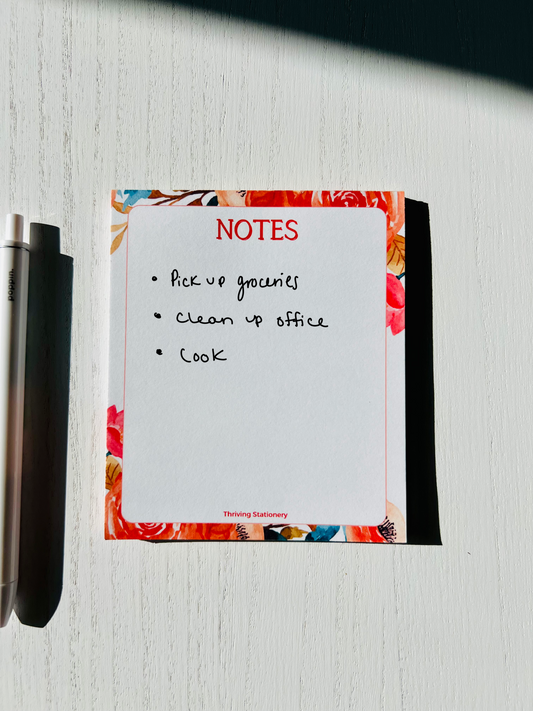 NOTES
• Pick up groceries
• Clean up office
• Cook
Thriving Stationery
poppin.